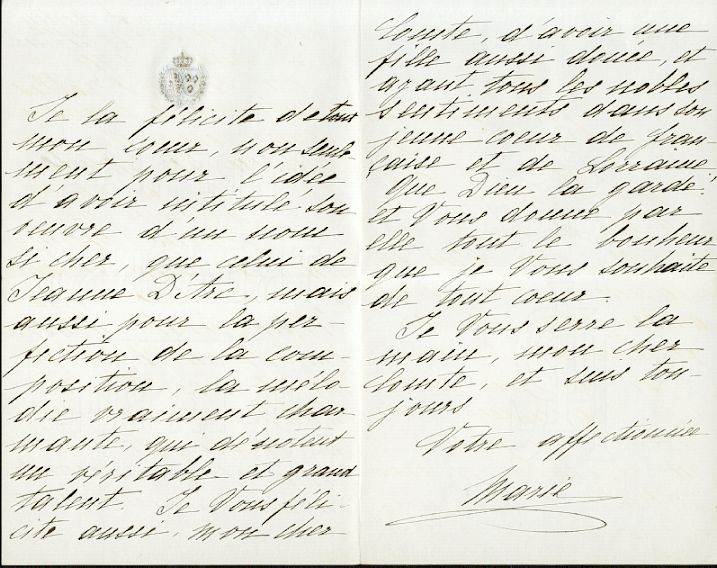 Je la félicite de tout
mon coeur, non seule
ment pour l'idée
d'avoir intitulé son
oeuvre d'un nom
si cher, que celui de
Jeanne D'Arc, mais
aussi pour la per-
fiction de la com-
position, la mélo-
die vraiment char
mante, qui dénotent
un véritable et grand
talent. Je Vous féli-
cite aussi, mon cher
Comte, d'avoir une
fille aussi douée, et
ayant tous les nobles
sentiments dans son
jeune coeur de Fran
çaise et de Lorraine
que Dieu la garde!
et Vous donne par
elle tout le bonheur
que je Vous souhaite
de tout coeur.
Je Vous serre la
main, mon cher
Comte, et suis tou-
jours
Votre affectionnée
Marie